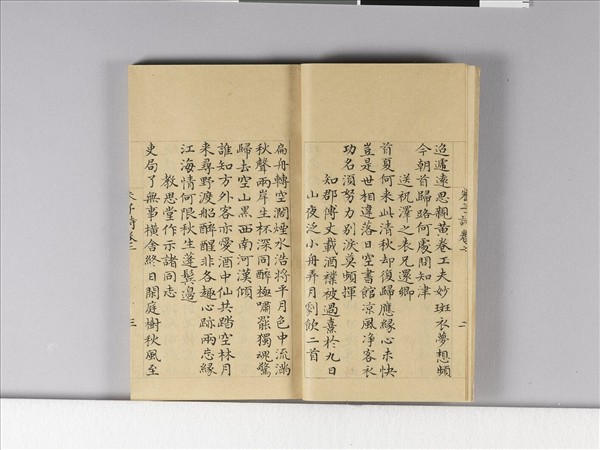 迨遽遠思親黃卷工夫妙斑衣夢想頻
今朝首歸路何處問知津
送祝澤之表兄還鄉
首夏何来此清秋却復歸應緣心未快
豈是世相違落日空書館凉風净客衣
功名須努力别淚莫頻揮
知郡傅丈載酒襆被過熹於九日
山夜泛小舟弄月劇飲二首
扁舟轉空濶煙水浩將平月色中流滿
秋聲兩岸生杯深同醉極嘯罷獨魂驚
歸去空山黑西南河漢傾
誰知方外客亦愛酒中仙共踏空林月
来尋野渡船醉醒非各趣心跡兩忘緣
江海情何限秋生蓬鬓邊
教思堂作示諸同志
吏局了無事橫舍終日閒庭樹秋風至
三